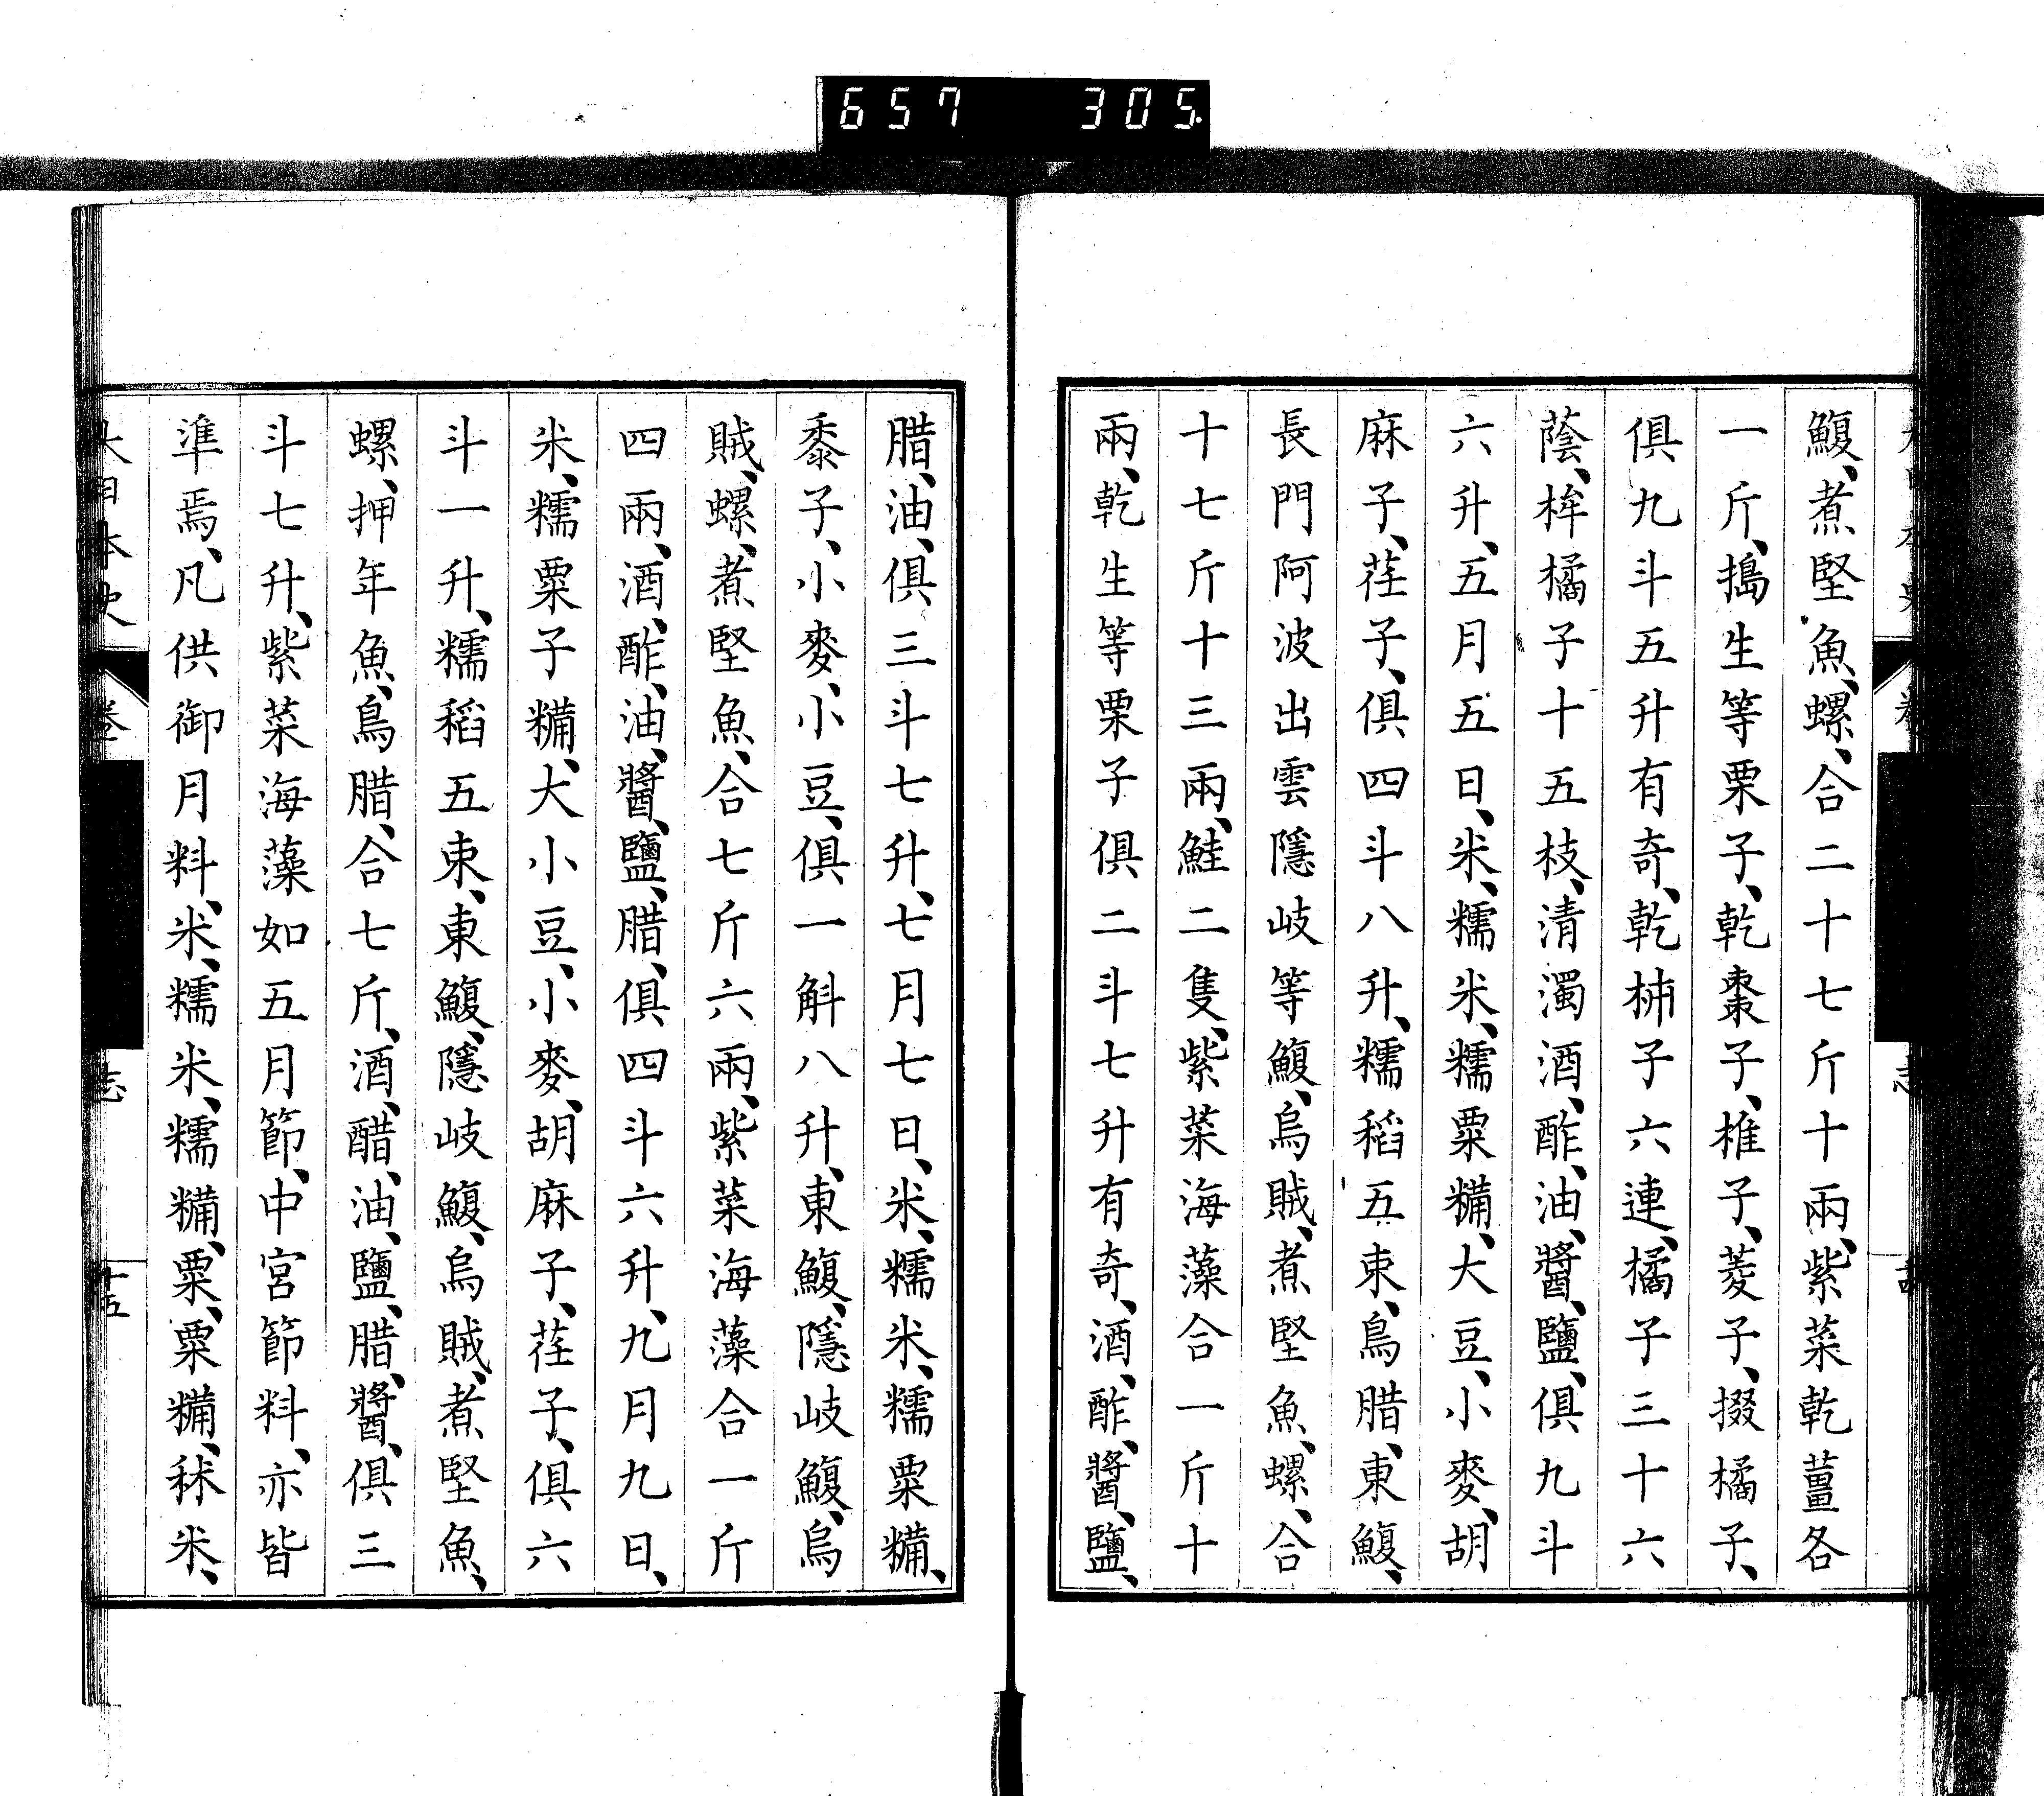 657 305
鰒、煮堅魚、螺、合二十七斤十兩、紫菜乾薑各
一斤、搗生等栗子、乾棗子、椎子、菱子、掇橘子、
俱九斗五升有奇、乾柿子六連、橘子三十六
蔭、桙橘子十五枝、清濁酒、酢、油、醬、鹽、俱九斗
六升、五月五日、米、糯米、糯粟糒、大豆、小麥、胡
麻子、荏子、俱四斗八升、糯稻五束、鳥腊、東鰒、
長門阿波出雲隱岐等鰒、烏賊、煮堅魚、螺、合
十七斤十三兩、鮭二隻、紫菜海藻合一斤十
兩、乾生等栗子俱二斗七升有奇、酒、酢、醬、鹽、
腊、油、俱三斗七升、七月七日、米、糯米、糯粟糒、
黍子、小麥、小豆、俱一斛八升、東鰒、隱岐鰒、烏
賊、螺、煮堅魚、合七斤六兩、紫菜海藻合一斤
四兩、酒、酢、油、醬、鹽、腊、俱四斗六升、九月九日、
米、糯粟子糒、大小豆、小麥、胡麻子、荏子、俱六
斗一升、糯稻五束、東鰒、隱岐鰒、烏賊、煮堅魚、
螺、押年魚、鳥腊、合七斤、酒、醋、油、鹽、腊、醬、俱三
斗七升、紫菜海藻如五月節、中宮節料、亦皆
準焉、凡供御月料、米、糯米、糯糒、粟、粟糒、秫米、
大日本史 卷 志 十五